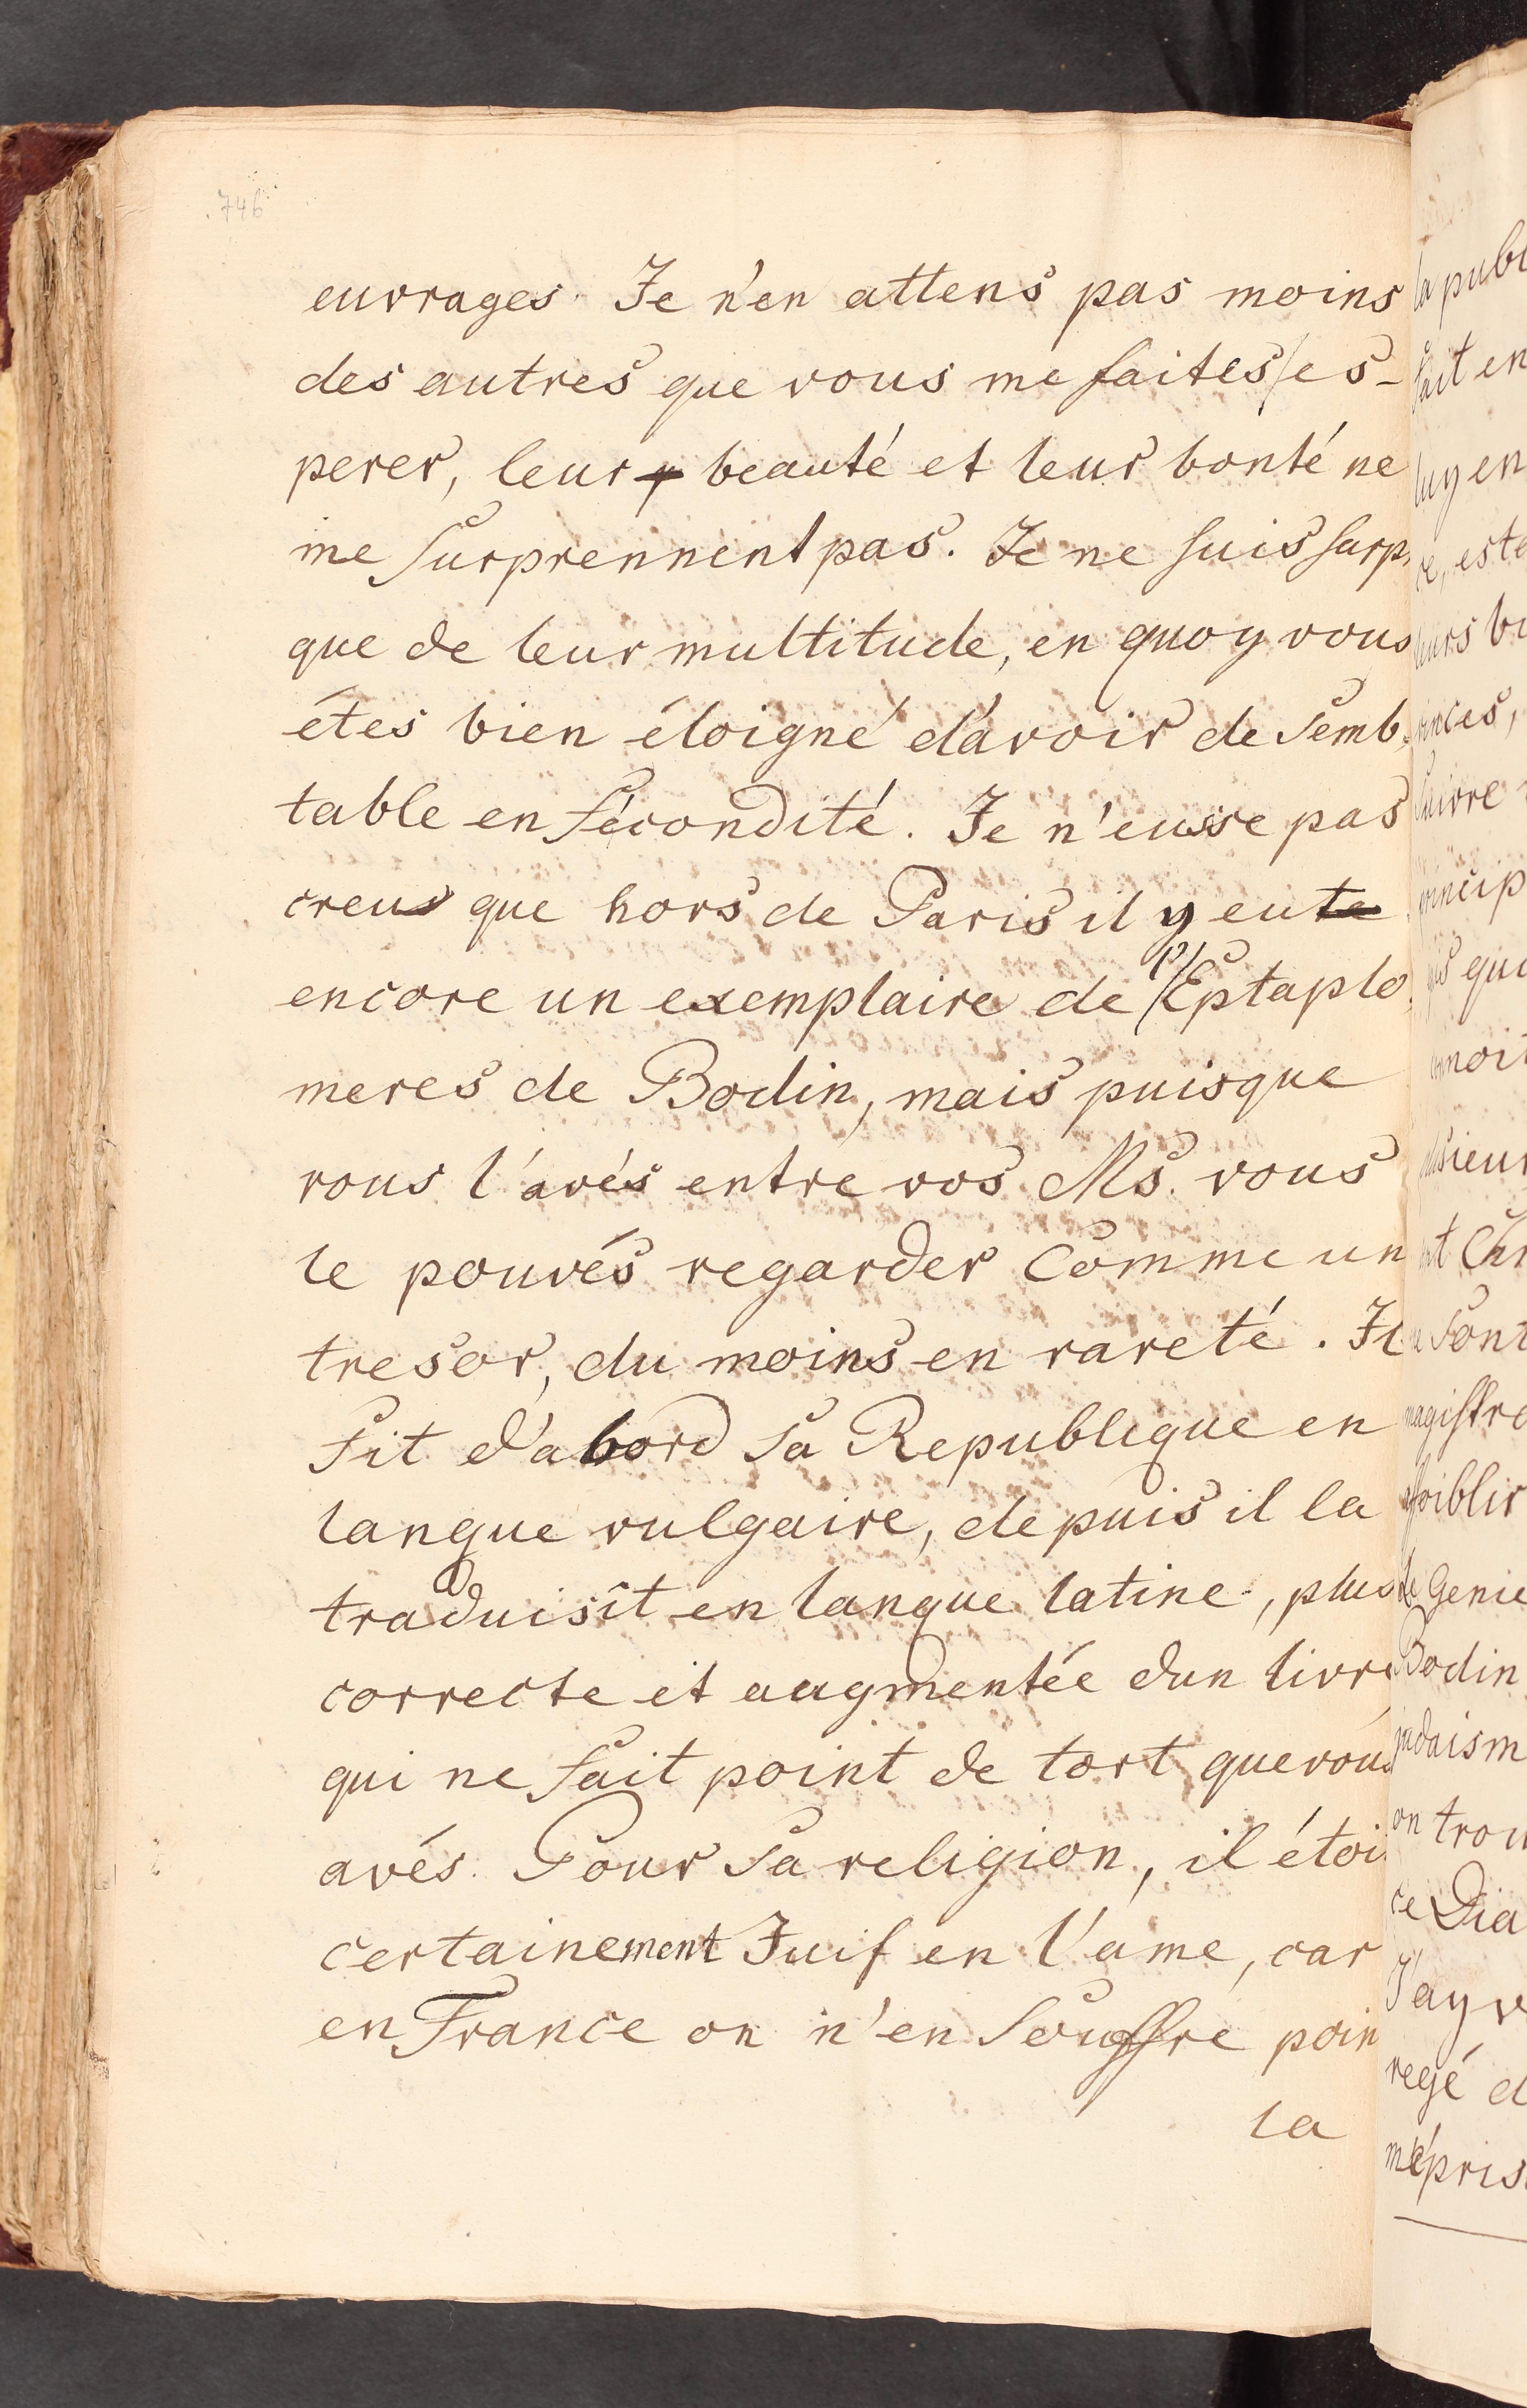 746
euvrages. Je n'en attens pas moins
des autres que vous me faites/es-
perer, leur beauté et leur bonté ne
me surprennent pas. Je ne suis surp
que de leur multitude, en quoy vous
étes bien éloigné d'avoir de semb
table en fécondité. Je n'eusse pas
creu que hors de Paris il y eut
encore un exemplaire de l'/Eptaplo
meres de Bodin, mais puisque
vous l'avés entre vos Ms. vous
le pouvés regarder comme un
tresor, du moins en rareté. Il
fit d'abord sa Republique en
langue vulgaire, depuis il la
traduisît en langue latine, plus
correcte et augmentée d'un livre
qui ne fait point de tort que vous
avés. Pour sa religion, il étoi
certainement Juif en l'ame, car
en France on n'en souffre poin
la
la publ
fait en
luy en
ce, este
leurs bi
inces,
suivre
princip
qui
nnoit
lusieur
nt Chr
sont
magistra
affoiblir
de Genie
Bodin
judaism
on trou
ce Dia
J'ay v
regé d
mépris